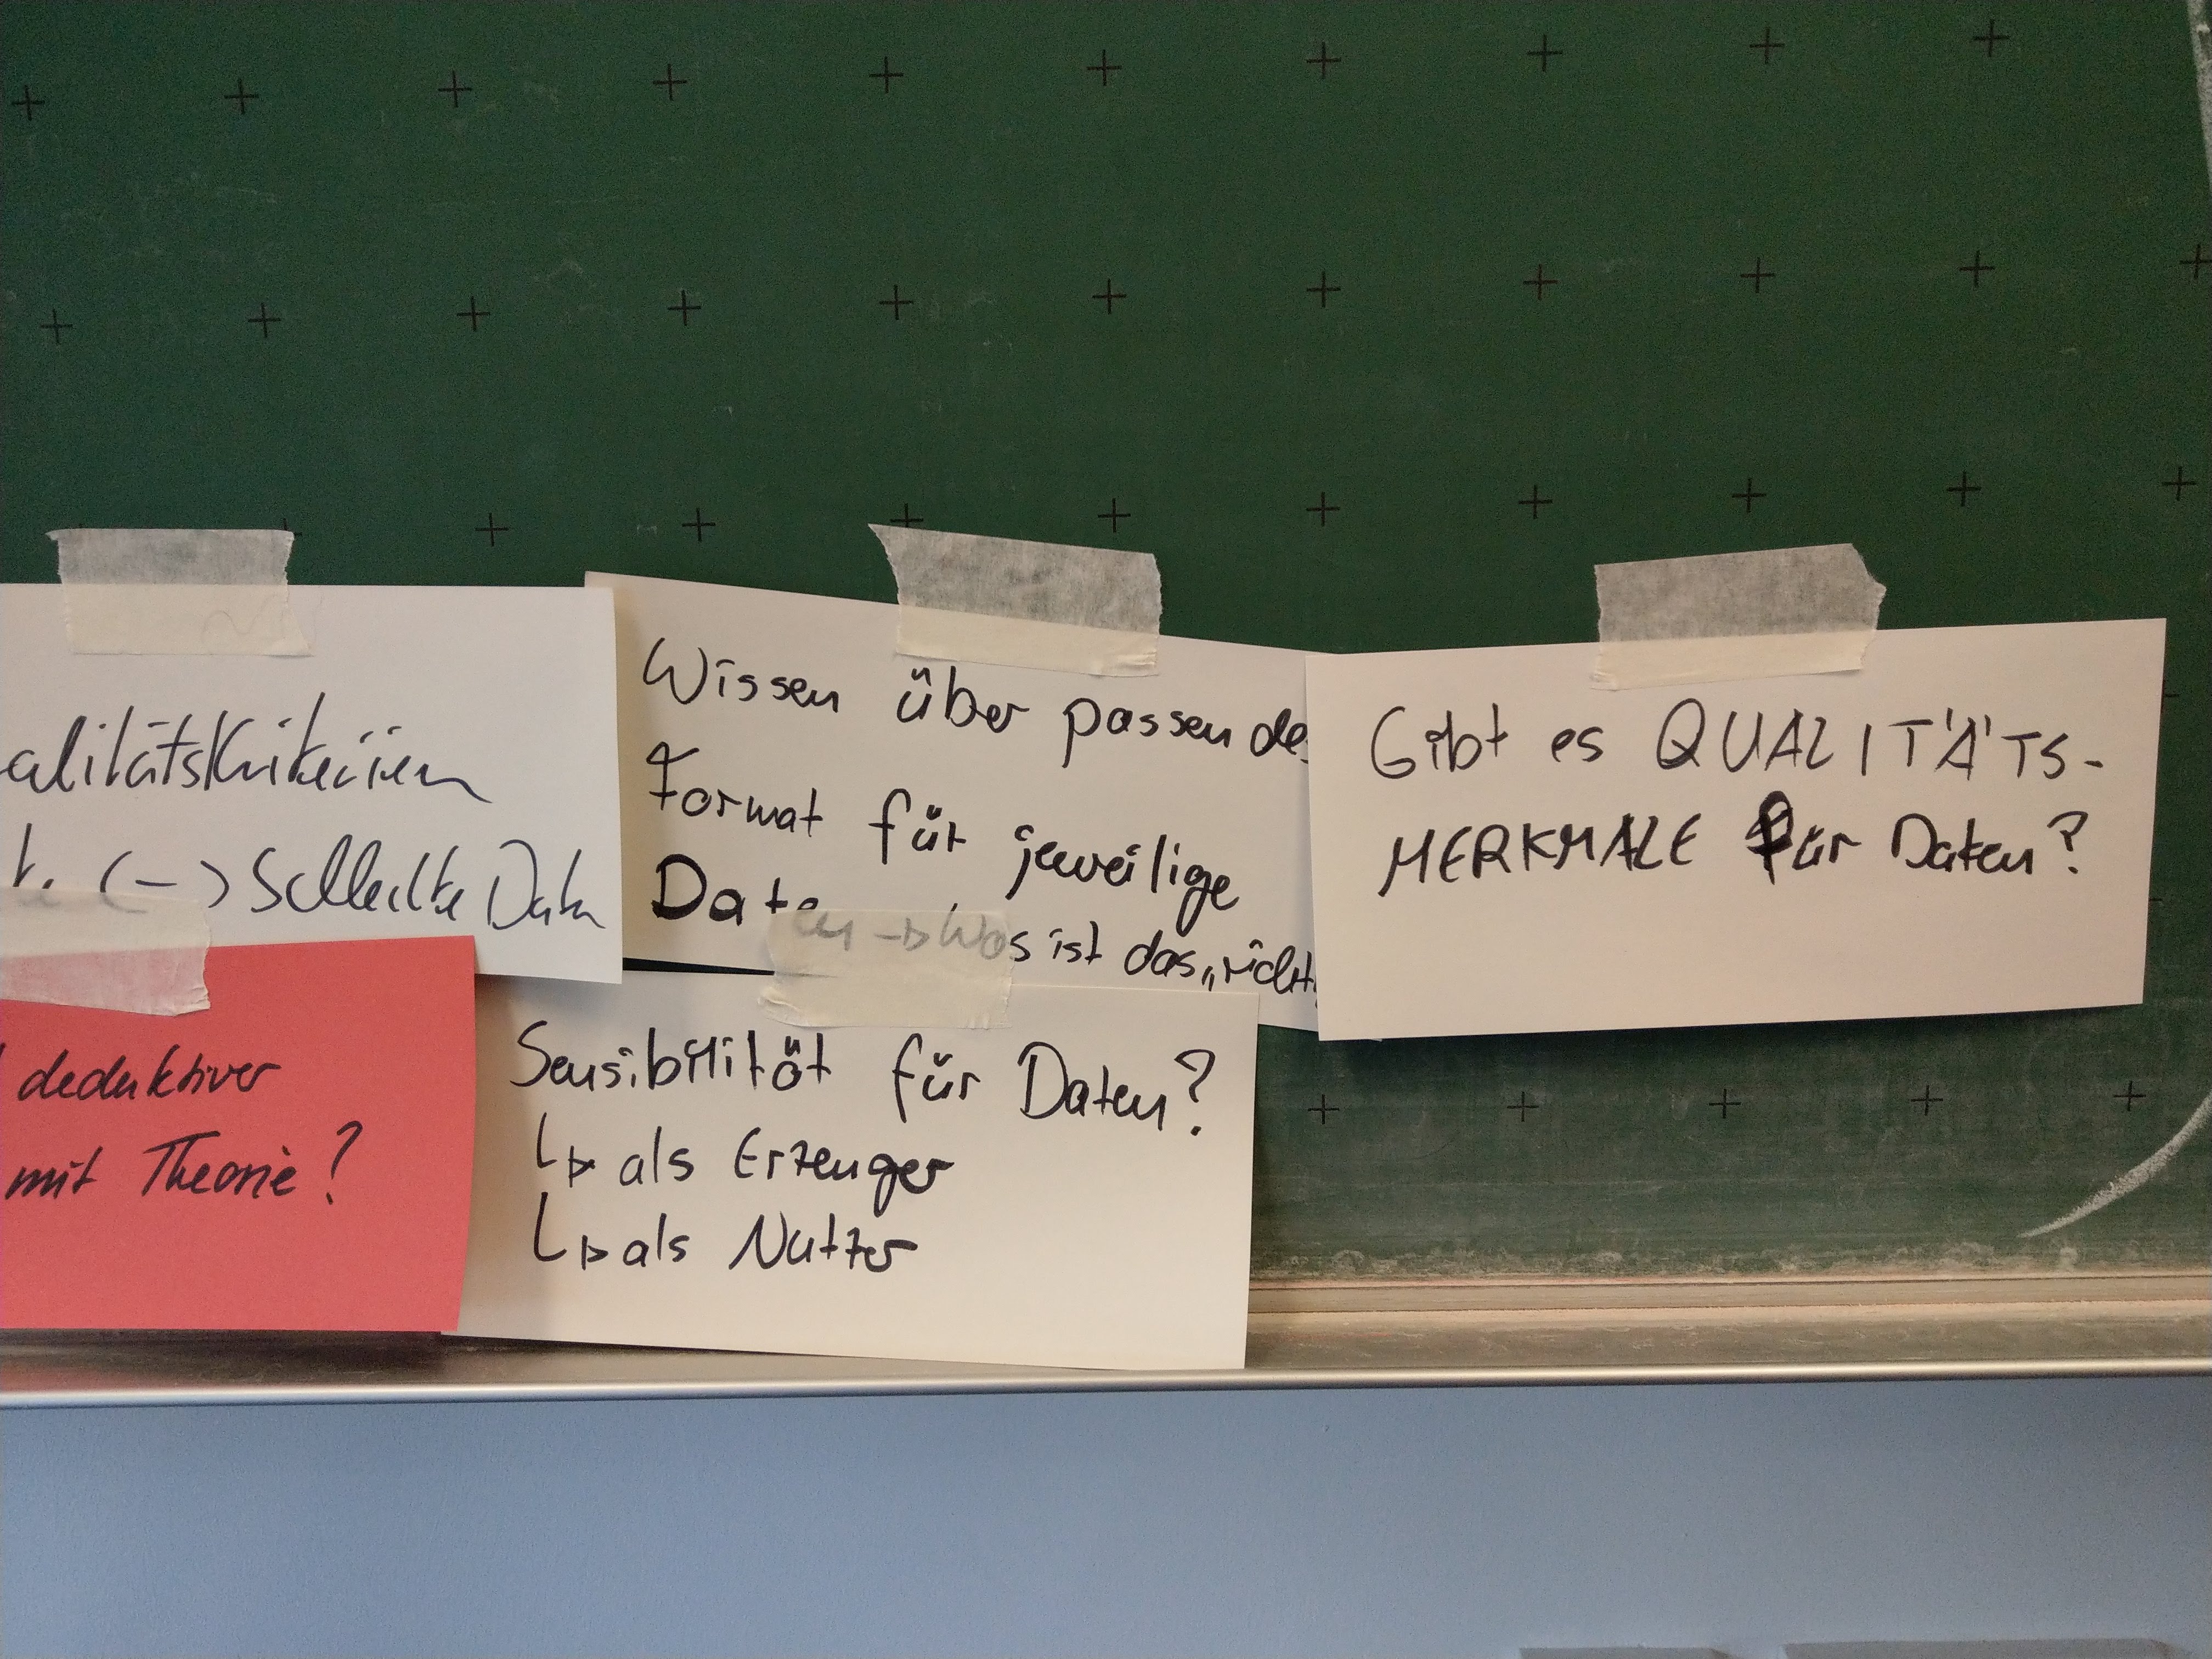 alitätskriterien
te (→) Schlechte Daten
Wissen über passende
Format für jeweilige
Daten → Was ist das „richt
Gibt es QUALITÄTS-
MERKMALE für Daten?
deduktiver
mit Theorie?
Sensibilität für Daten?
↳ als Erzeuger
↳ als Nutzer